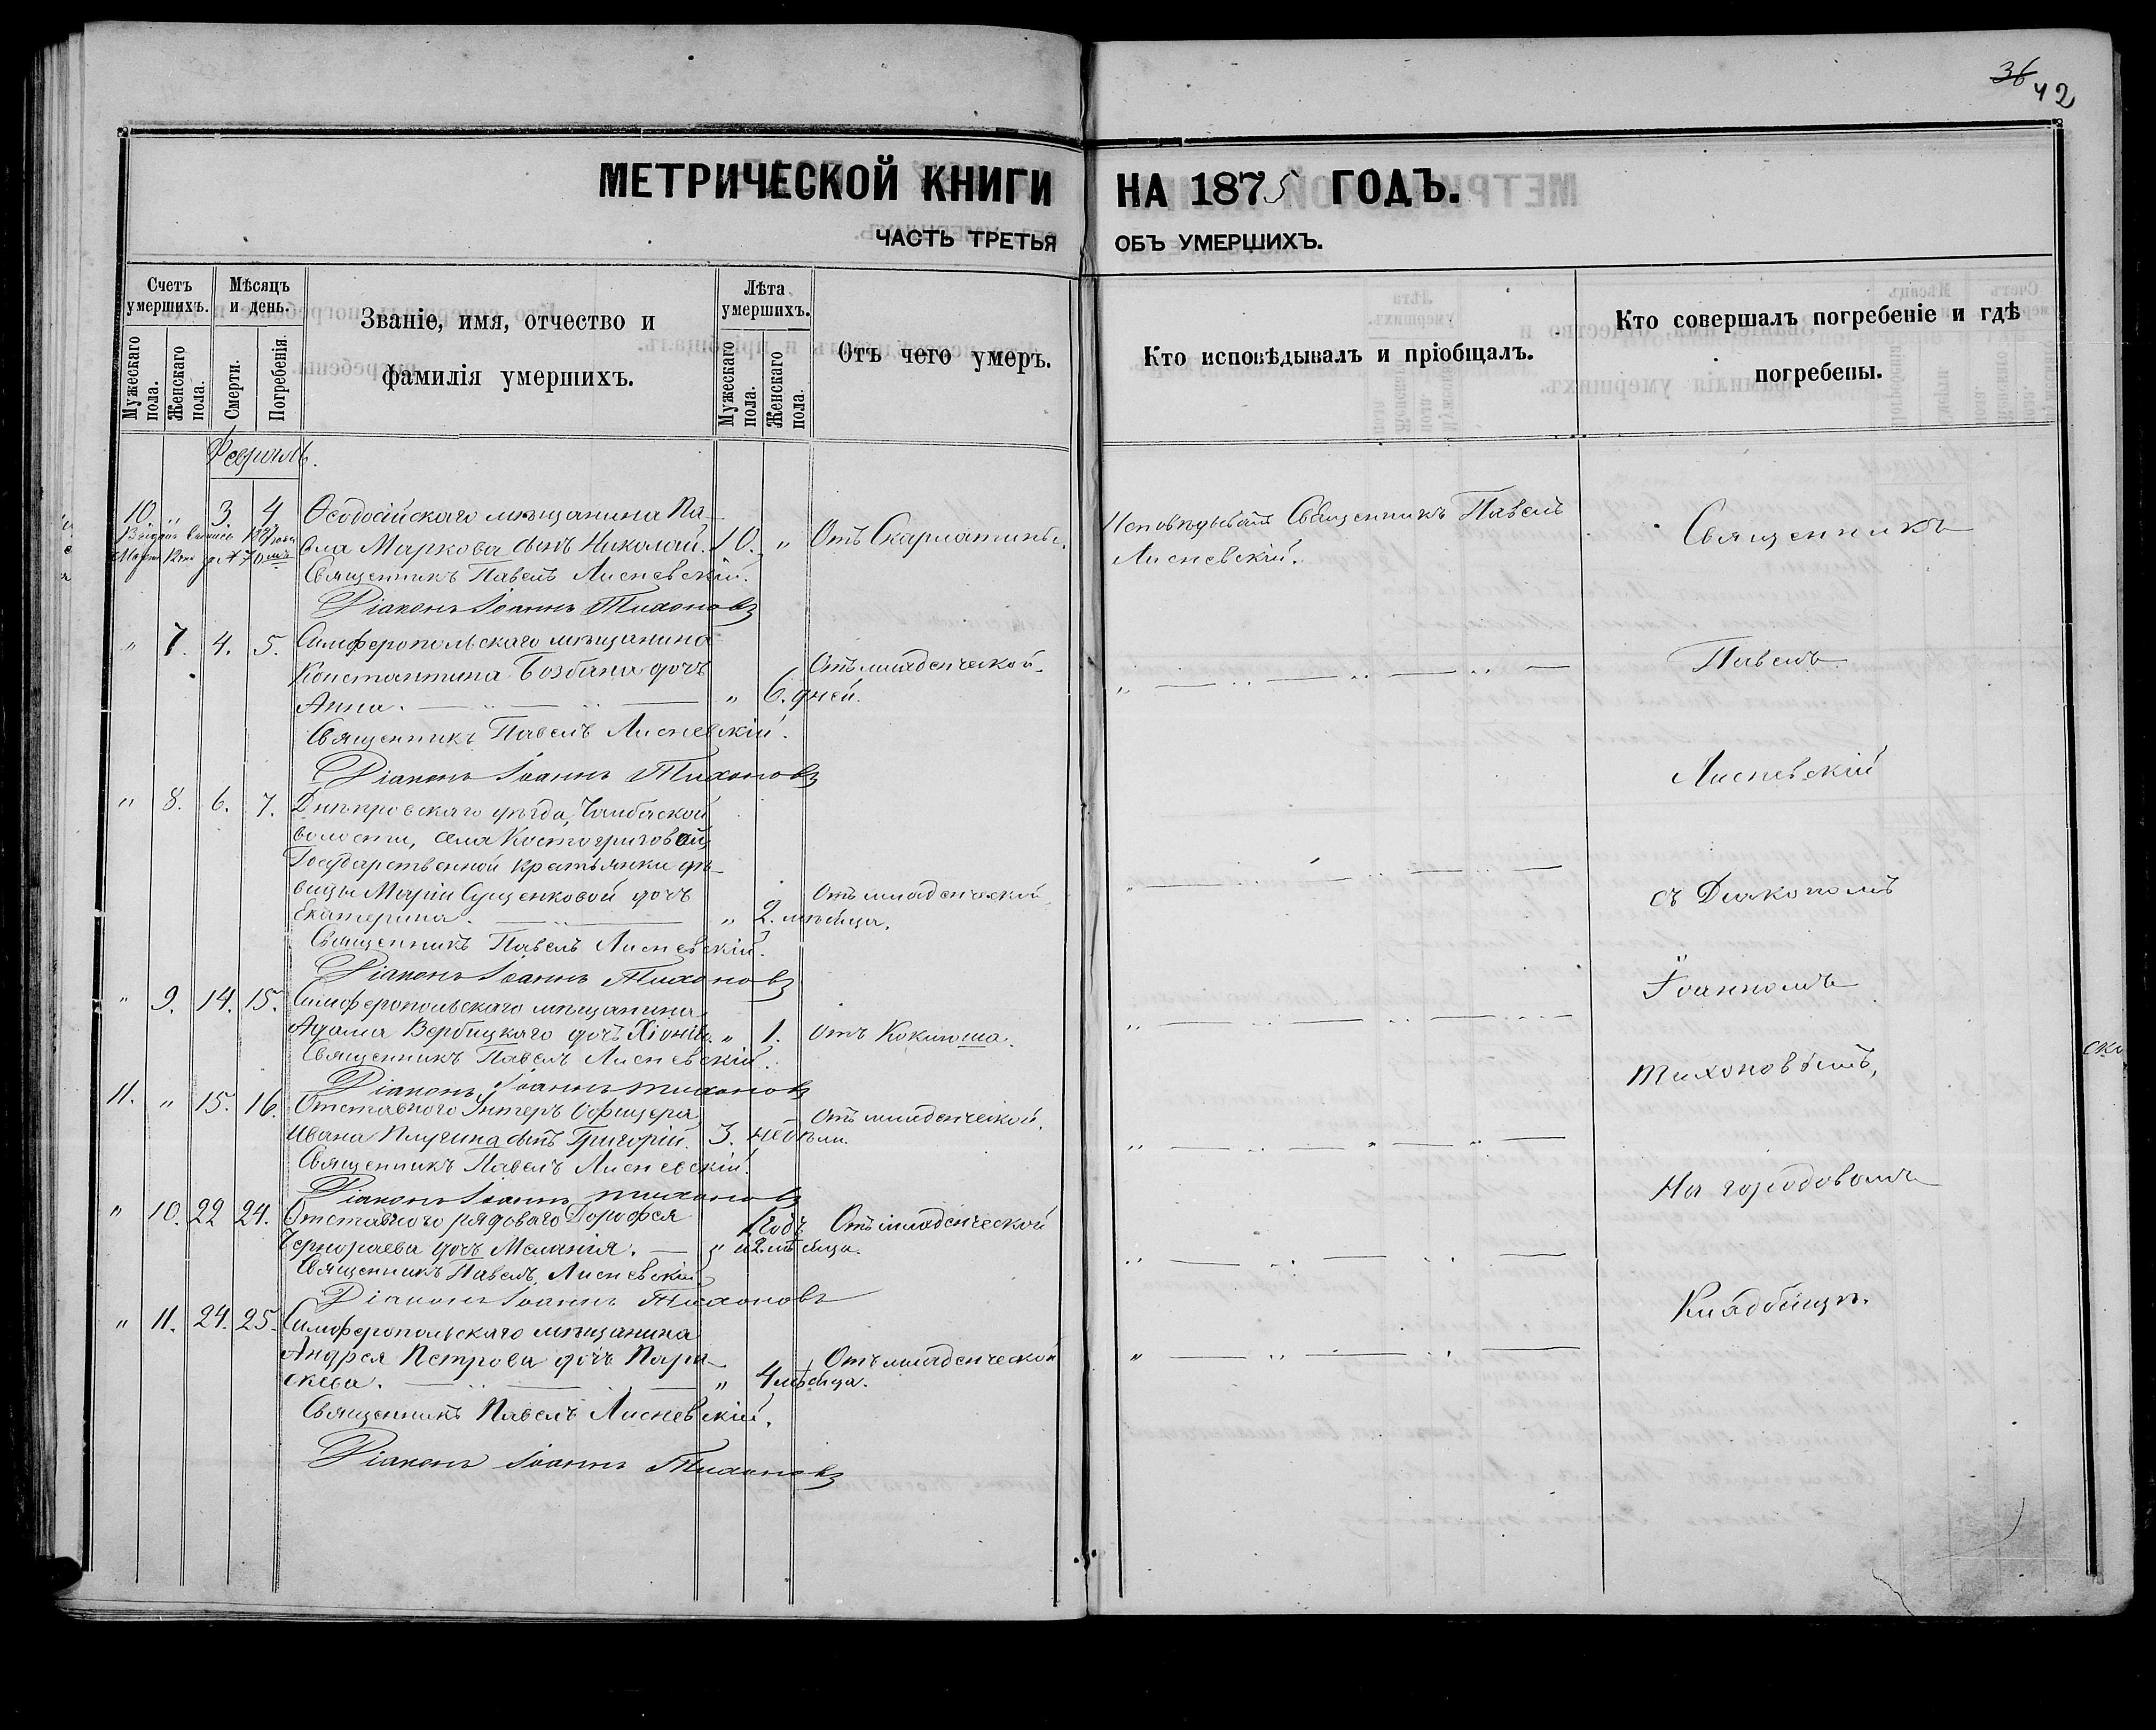 36 42
МЕТРИЧЕСКОЙ КНИГИ НА 1875 ГОДЪ.
ЧАСТЬ ТРЕТЬЯ ОБЪ УМЕРШИХЪ.
Счетъ умершихъ.
Мужескаго пола.
Женскаго пола.
Мѣсяцъ и день.
Смерти.
Погребенія.
Званіе, имя, отчество и
фамилія умершихъ.
Лѣта умершихъ.
Мужескаго пола.
Женскаго пола.
Отъ чего умеръ.
Кто исповѣдывалъ и пріобщалъ.
Кто совершалъ погребеніе и гдѣ
погребены.
Февраль.
10. " 3. 4. Ѳеодосійскаго мѣщанина Па-
вла Маркова сынъ Николай. 10. " Отъ Скарлатины.
Священникъ Павелъ Лисневскій.
Діаконъ Іоаннъ Тихоновъ
Исповѣдывалъ Священникъ Павелъ
Лисневскій.
" 7. 4. 5. Симферопольскаго мѣщанина
Константина Бозбана дочь
Анна. " 6. дней. Отъ младенческой.
Священникъ Павелъ Лисневскій.
Діаконъ Іоаннъ Тихоновъ
" 8. 6. 7. Днѣпровскаго уѣзда, Чалбаской
волости, села Костогризовой
Государственной крестьянки дѣ-
вицы Маріи Сущенковой дочь
Екатерина. " 2. мѣсяца. Отъ младенческой.
Священникъ Павелъ Лисневскій.
Діаконъ Іоаннъ Тихоновъ
" 9. 14. 15. Симферопольскаго мѣщанина
Адама Вербицкаго дочь Хіонія. " 1. Отъ Коклюша.
Священникъ Павелъ Лисневскій.
Діаконъ Іоаннъ Тихоновъ
11. " 15. 16. Отставного Унтеръ Офицера
Ивана Плугина сынъ Григорій. 3. недѣли. Отъ младенческой.
Священникъ Павелъ Лисневскій.
Діаконъ Іоаннъ Тихоновъ
" 10. 22 24. Отставного рядоваго Дорофея
Черногаева дочь Меланія. " 1 годъ и 2 мѣсяца. Отъ младенческой
Священникъ Павелъ Лисневскій.
Діаконъ Іоаннъ Тихоновъ
" 11. 24. 25. Симферопольскаго мѣщанина
Андрея Петрова дочь Пара-
скева. " 4 мѣсяца. Отъ младенческой
Священникъ Павелъ Лисневскій.
Діаконъ Іоаннъ Тихоновъ
Священникъ
Павелъ
Лисневскій
съ Діакономъ
Іоанномъ
Тихоновымъ,
На городовомъ
Кладбищѣ.